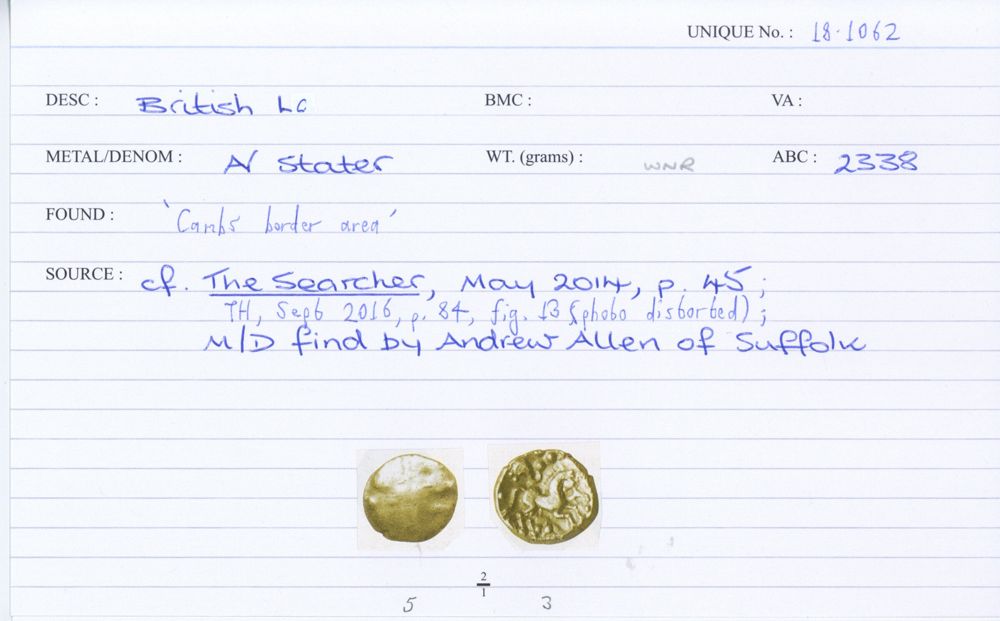 UNIQUE No. : 18·1062
DESC : British Lc BMC : VA :
METAL/DENOM : A/ Stater WT. (grams) : WNR ABC : 2338
FOUND : 'Cambs border area'
SOURCE : cf. The Searcher, May 2014, p. 45 ;
TH, Sept 2016, p. 84, fig. 13 (photo distorted) ;
M/D find by Andrew Allen of Suffolk
2
1
5 3